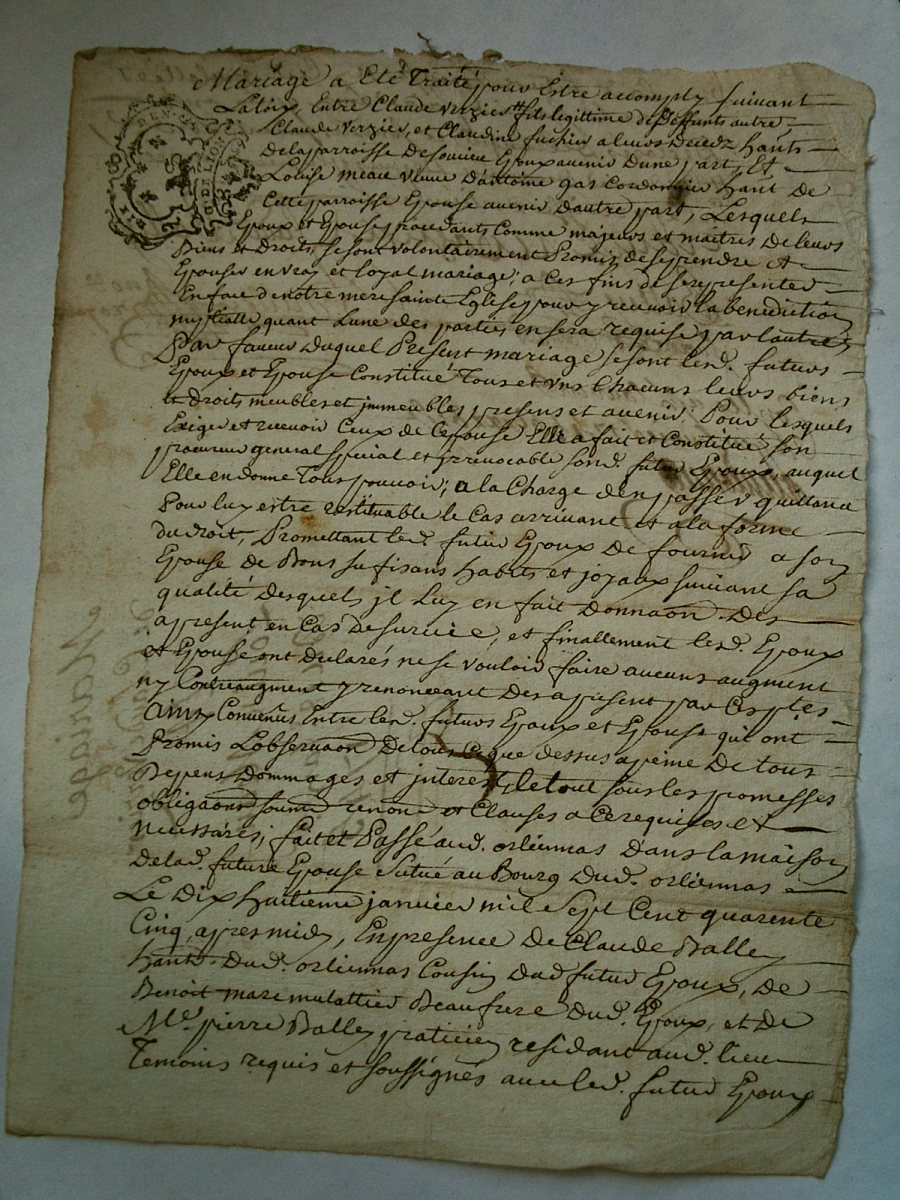 Mariage a Eté Traité pour Estre accomply suivant
La loix, Entre Claude Verzier fils legittime de deffunts autre
Claude Verzier, et Claudine fuchier a leurs decedz hants
De la parroisse De soucieu Epoux avenir d'une part, Et
Louise meau veuve D'antoine gas Cordonnier hant De
Cette parroisse Epouse avenir d'autre part, Lesquels
Epoux et Epouse procedants Comme majeurs et maitres De leurs
Biens et Droits, se sont volontairement Promis de se prendre et
Epouser en vray et loyal mariage, a Ces fins de se representer
En face de notre mere Sainte Eglise pour y recevoir la benediction
quant Lune des parties en sera requise par lautre,
Par faveur duquel Present mariage se sont lesd. futurs
Epoux et Epouse Constitué Tous et uns Chacuns leurs biens
et Droits meubles et jmmeubles presens et avenir Pour lesquels
Exiger et recevoir Ceux de L'epouse Elle a fait et Constitué son
procureur general special et yrrevocable sond. futur Epoux, auquel
Elle en donne Tous pouvoir, a la Charge d'en passer quittance
Pour luy estre restituable le Cas arrivant et a la forme
du droit, Promettant led. futur Epoux De fournir a son
Epouse de Bons sufisans habits et joyaux suivant sa
qualité desquels jl Luy en fait Donnaon Des
apresent en Cas De survie, et finallement lesd. Epoux
et Epouse ont declarés ne se vouloir faire aucuns augment
ny Contreaugment y renonceant Des apresent par Cesptes
Ainsy Convenus Entre lesd. futurs Epoux et Epouse qui ont
Promis L'observaon De tous Ce que dessus a peine De tous
Depens Dommages et interest, le tout sous les promesses
obligaons soumd renond et Clauses a Ce requises et
necessaires, fait et Passé aud. orliennas Dans la maison
de lad. future Epouse Situé au Bourg Dud. orliennas
Le Dix huitieme janvier mil Sept Cent quarente
Cinq, apres midy, En presence De Claude Balley
hant. Dud. orliennas Cousin Dud futur Epoux, De
Benoit mulattier Beaufrere Dud. Epoux, et De
Me. pierre Balley praticien residant aud. lieu
Temoins requis et soussignés avec led. futur Epoux